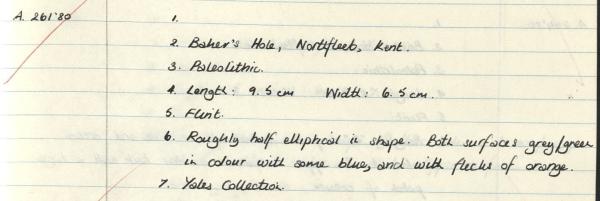 A. 261'80
1.
2. Baker's Hole, Northfleet, Kent.
3. Paleolithic.
4. Length: 9.5 cm Width: 6.5 cm.
5. Flint.
6. Roughly half elliptical in shape. Both surfaces grey/green
in colour with some blue, and with flecks of orange.
7. Yales Collection.